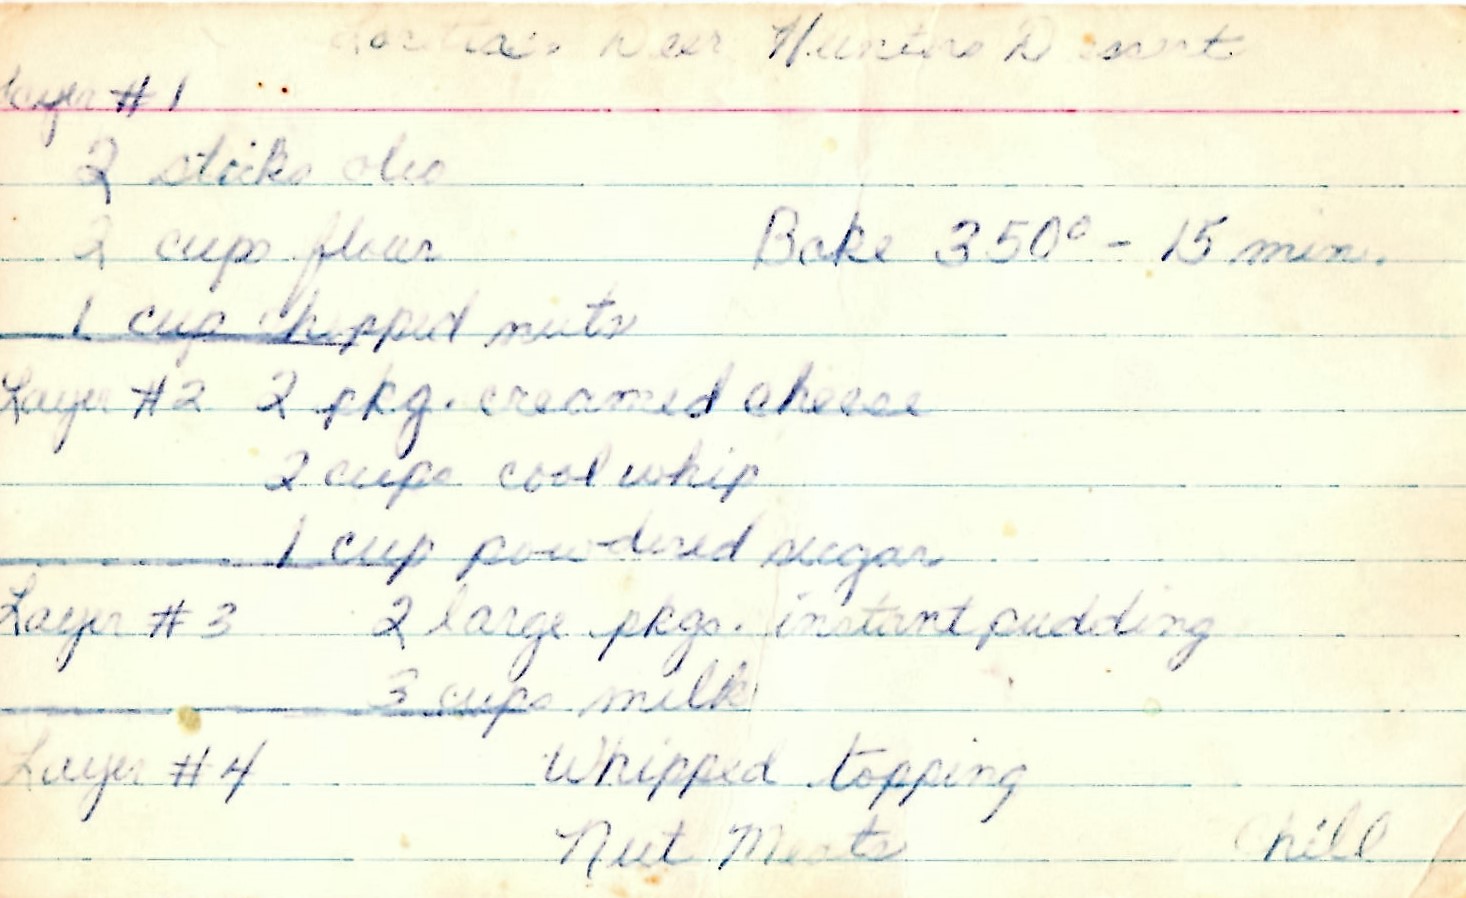 Deer Hunters Desert
Layer #1
2 sticks oleo
2 cups flour Bake 350° - 15 min.
1 cup chipped nuts
Layer #2 2 pkg. creamed cheese
2 cups cool whip
1 cup powdered sugar
Layer #3 2 large pkgs. instant pudding
3 cups milk
Layer #4 Whipped topping
Nut Meats Chill